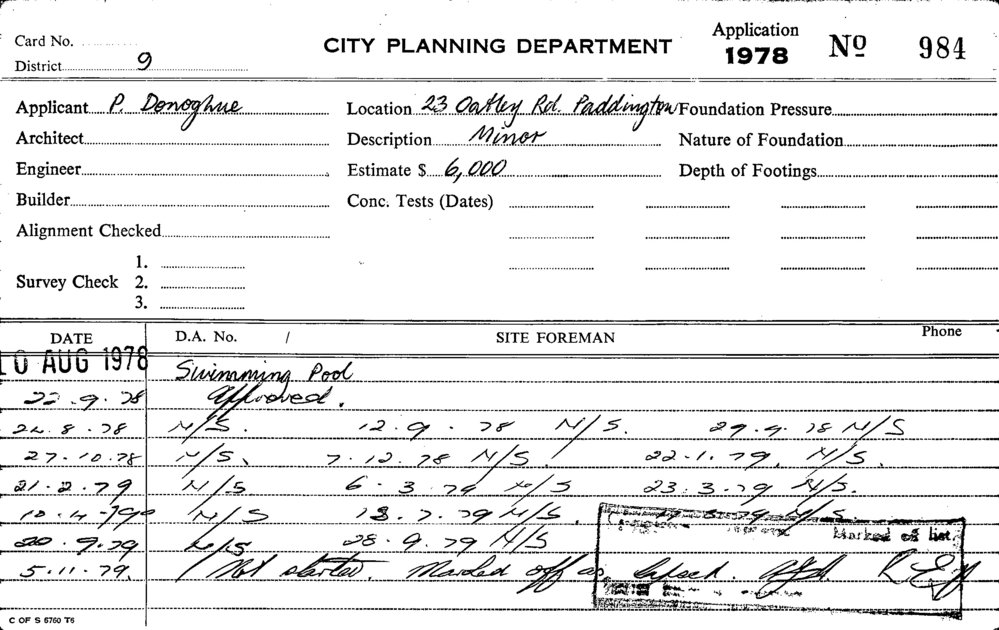 Card No.
CITY PLANNING DEPARTMENT
Application
1978
Nº 984
District 9
Applicant P. Donoghue
Location 23 Oatley Rd. Paddington
Foundation Pressure
Architect
Description Minor
Nature of Foundation
Engineer
Estimate $ 6,000
Depth of Footings
Builder
Conc. Tests (Dates)
Alignment Checked
Survey Check
1.
2.
3.
DATE
D.A. No. /
SITE FOREMAN
Phone
10 AUG 1978
Swimming Pool
22.9.78 Approved.
24.8.78 N/S. 12.9.78 N/S. 29.9.78 N/S
27.10.78 N/S. 7.12.78 N/S. 22.1.79. N/S.
21.2.79 N/S 6.3.79 N/S 23.3.79 N/S.
10.4.79 N/S 18.7.79 N/S. 79 N/S
Marked off list
20.9.79 N/S 28.9.79 N/S
5.11.79. Not started. Marked off as lapsed.
C OF S 5750 T6